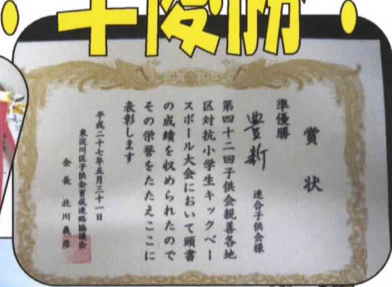 準優勝
賞状
準優勝
豊新 連合子供会様
第四十二回子供会親善各地
区対抗小学生キックベー
スボール大会において頭書
の成績を収められたので
その栄誉をたたえここに
表彰します
平成二十七年五月三十一日
東淀川区子供会育成連絡協議会
会長 北川義彦